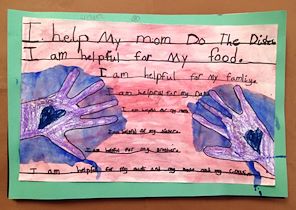 I help My mom Do The Dishes
I am helpful for My food.
I am helpful for my famliye.
I am helpful for my
I am helpful for my
I am helpful for my sisters.
I am helpful for my brother.
I am helpful for my and my and my